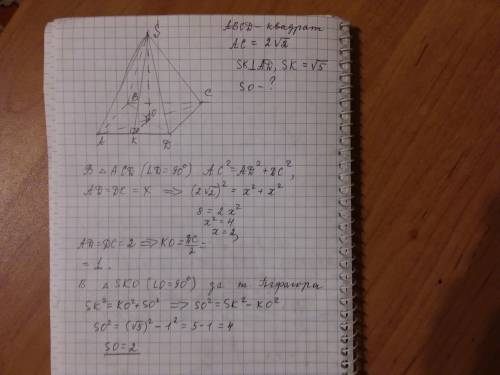 S
ABCD – квадрат
AC = 2√2
SK⊥AD, SK = √5
SO – ?
B
C
O
A K D
В △ ACD (∠D = 90°) AC² = AD² + DC²,
AD = DC = x ⟹ (2√2)² = x² + x²
8 = 2x²
x² = 4
x = 2,
AD = DC = 2 ⟹ KO = DC/2 =
= 1.
В △ SKO (∠O = 90°) за т. Піфагора
SK² = KO² + SO² ⟹ SO² = SK² – KO²
SO² = (√5)² – 1² = 5 – 1 = 4
SO = 2